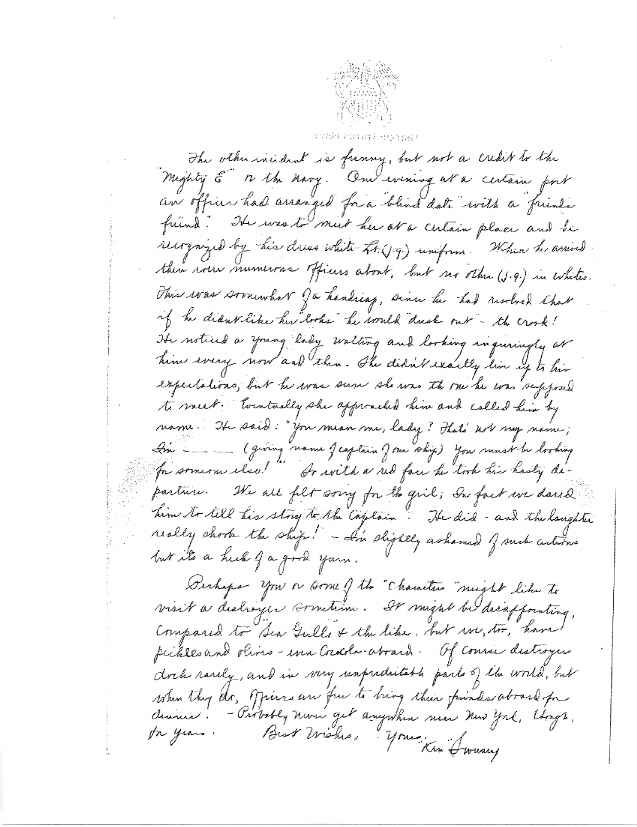 The other incident is funny, but not a credit to the
"Mighty E" or the Navy. One evening at a certain port
an officer had arranged for a "blind date" with a "friends
friend". He was to meet her at a certain place and be
recognized by his dress white Lt.(j.g.) uniform. When he arrived
there were numerous officers about, but no other (j.g.) in whites.
This was somewhat of a handicap, since he had resolved that
if he didn't like her "looks" he would "duck out" - the crook!
He noticed a young lady waiting and looking inquiringly at
him every now and then. She didn't exactly live up to his
expectations, but he was sure she was the one he was supposed
to meet. Eventually she approached him and called him by
name. He said: "You mean me, lady? That's not my name;
I'm ——— (giving name of captain of our ship) You must be looking
for someone else!" So with a red face he took his hasty de-
parture. We all felt sorry for the girl; In fact we dared
him to tell his story to the Captain. He did - and the laughter
really shook the ship! - I'm slightly ashamed of such actions
but it's a heck of a good yarn.
Perhaps you or some of the "Characters" might like to
visit a destroyer sometime. It might be disappointing,
compared to "Sea Gulls" & the like, but we, too, have
pickles and olives - even aboard. Of course destroyers
dock rarely, and in very unpredictable parts of the world, but
when they do, officers are free to bring their friends aboard for
dinner. - Probably never get anywhere near New York, though,
for years. Best Wishes, Yours, Ken Sweeney